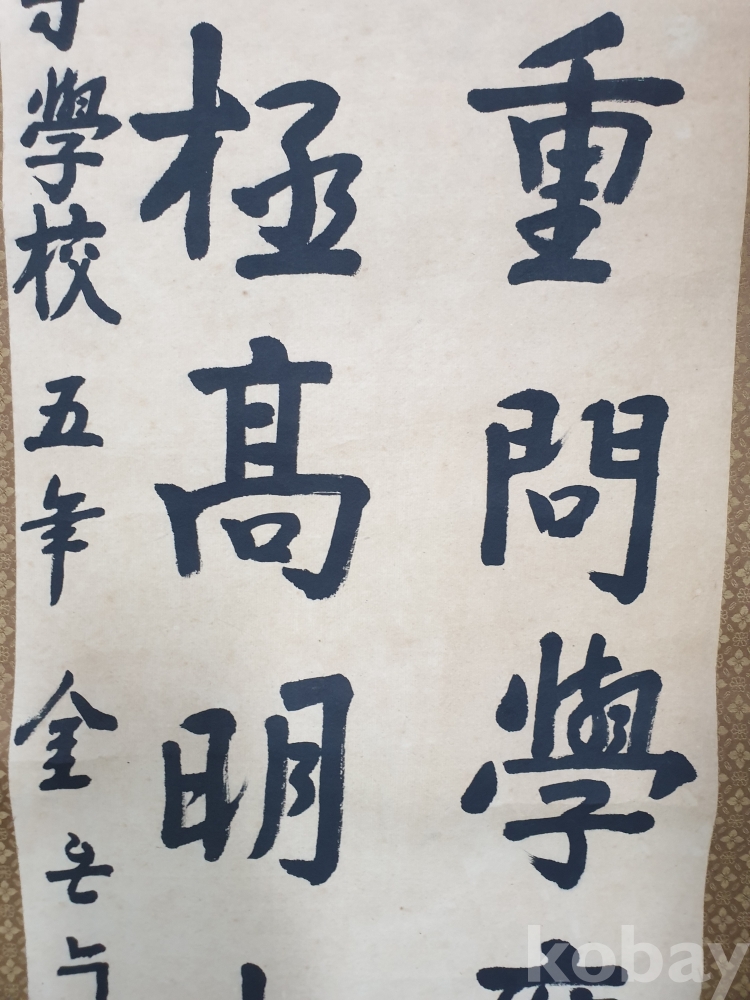 重問學
極高明
學校 五年 金
kobay